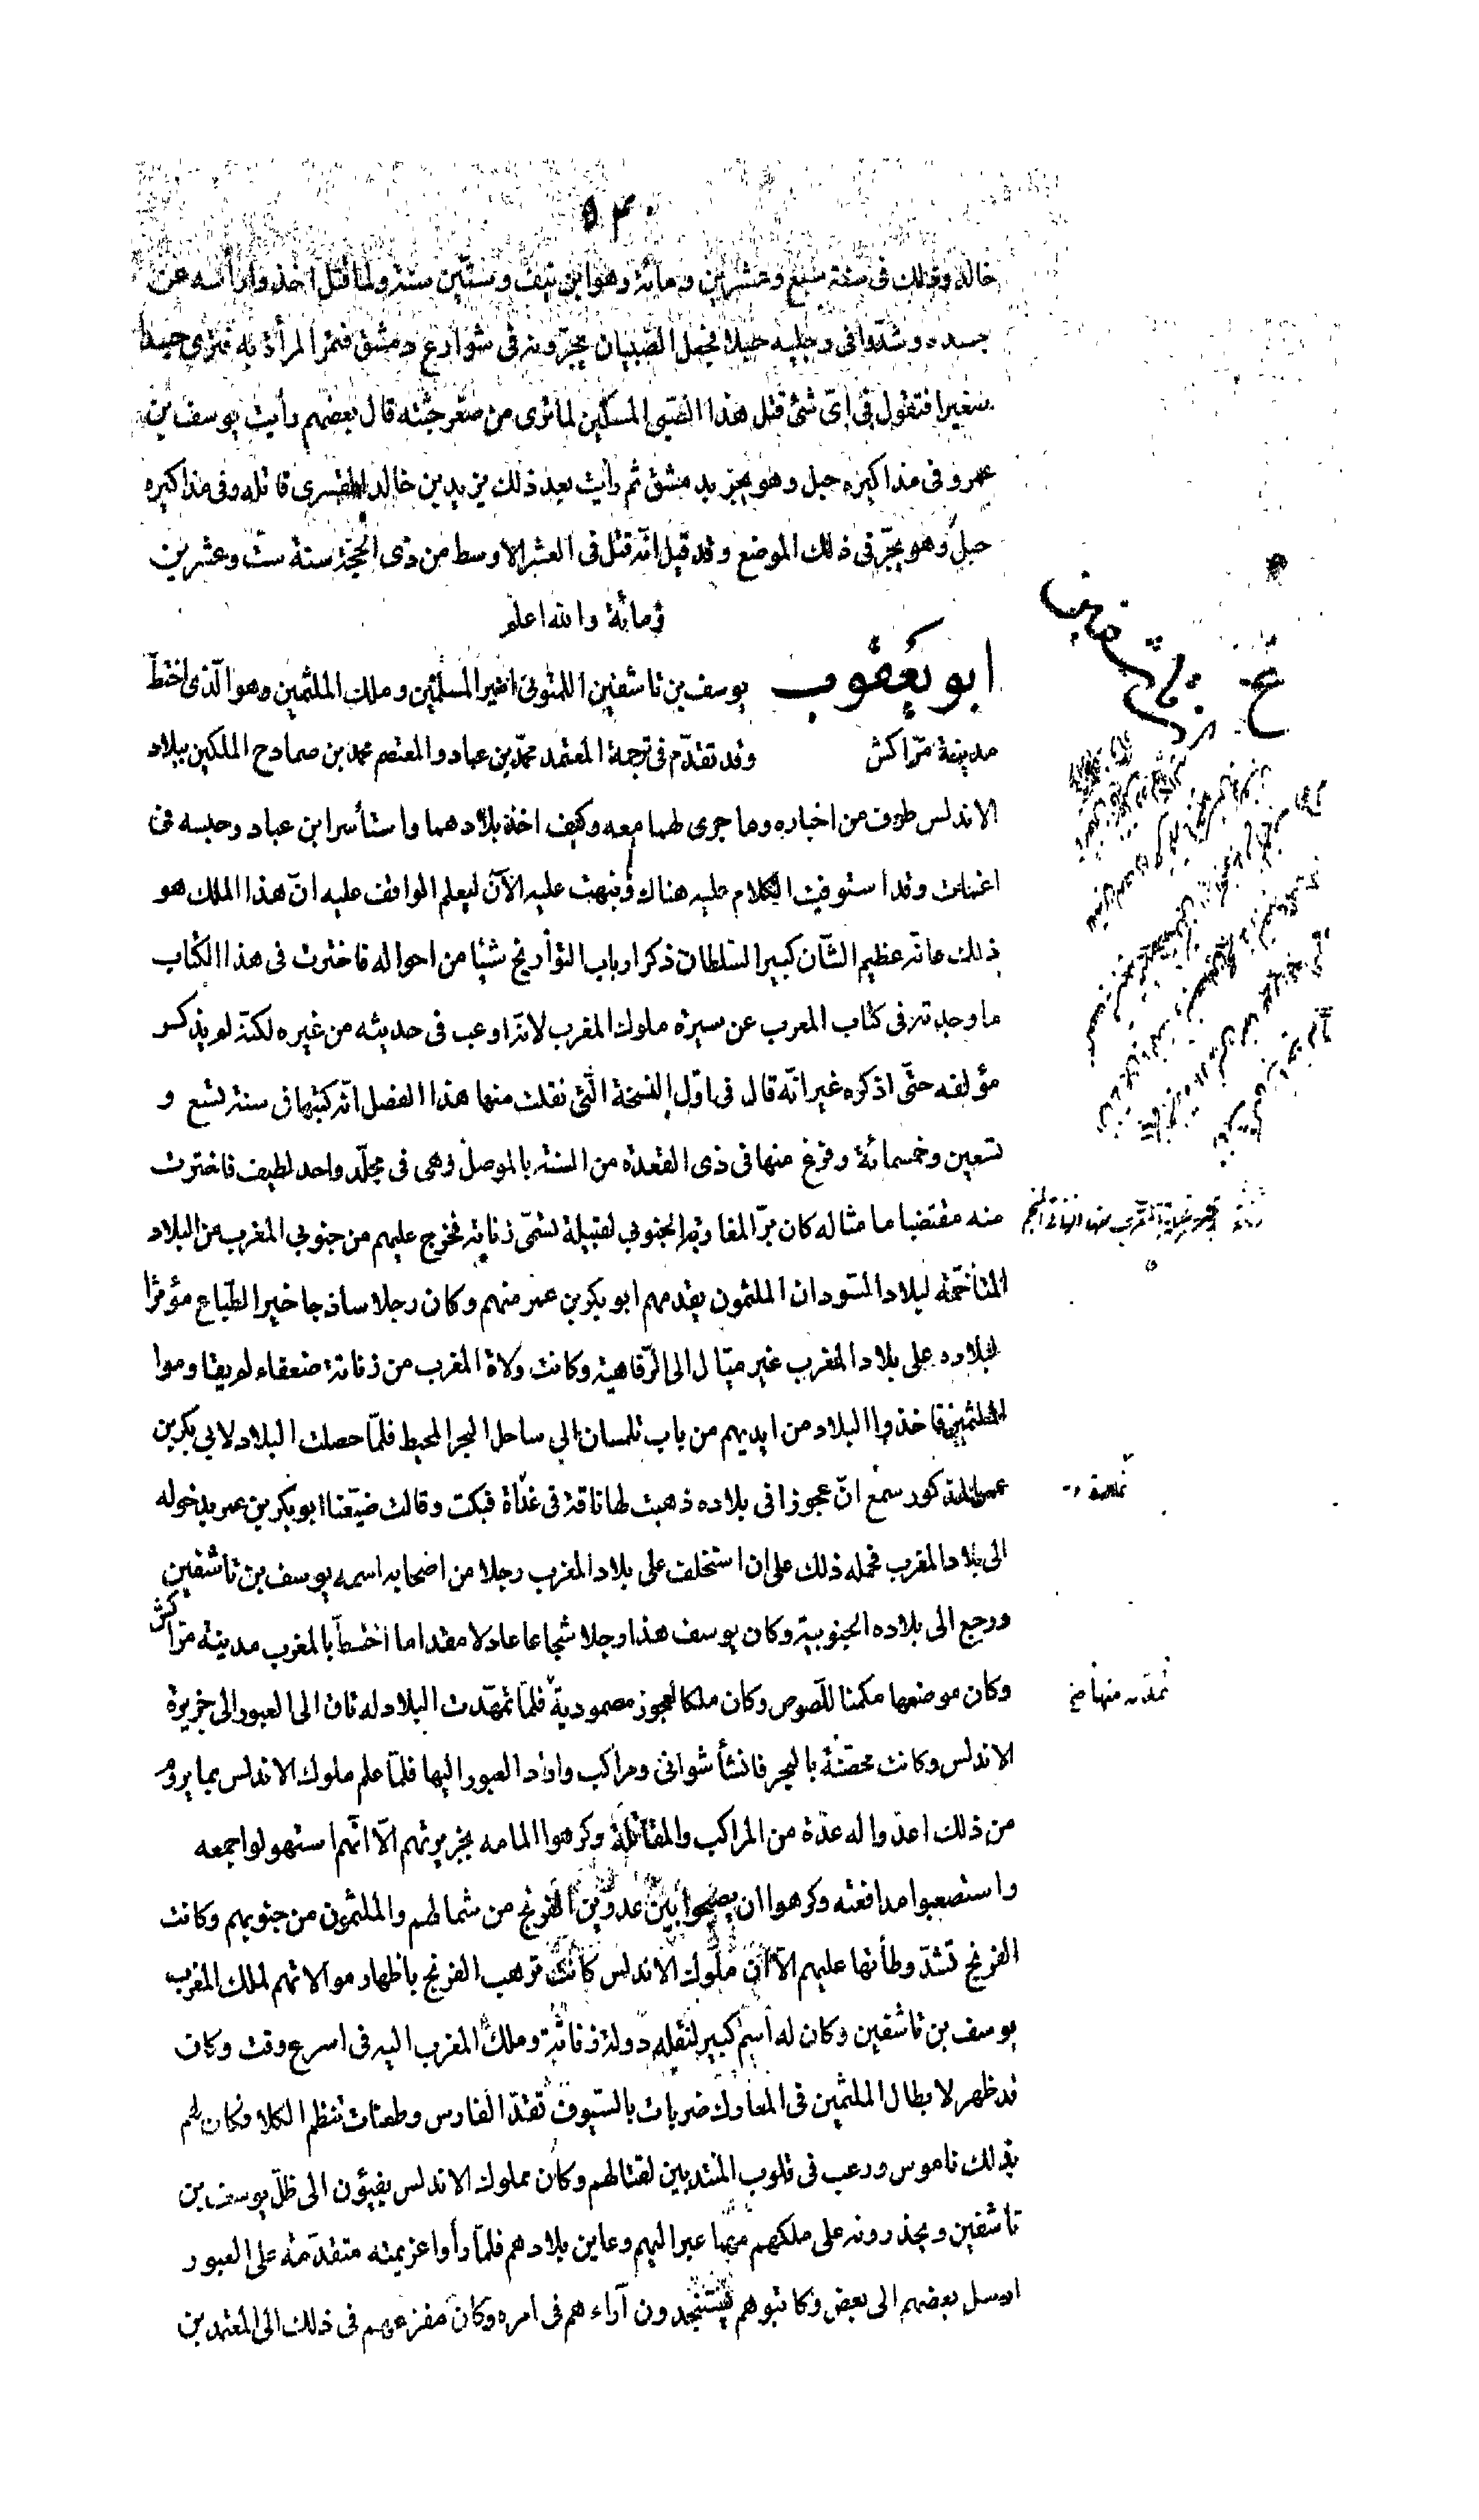 ٥٣٠
خالد وذلك فى سنة سبع وعشرين ومائة وهو ابن نيف وستّين سنة ولما قتل اخذوا رأسه عن
جسده وشدّوا فى رجليه حبلا فجعل الصّبيان يجرّونه فى شوارع دمشق فتمر المرأة به فترى جسدا
صغيرا فتقول فى اىّ شئ قتل هذا الصّبى المسكين لما ترى من صغر جثته قال بعضهم رأيت يوسف بن
عمر وفى مذاكيره حبل وهو يجر بدمشق ثم رأيت بعد ذلك يزيد بن خالد القسرى قاتله وفى مذاكيره
حبل وهو يجرّ فى ذلك الموضع وقد قيل انّه قتل فى العشر الاوسط من ذى الحجّة سنة ستّ وعشرين
ومائة والله اعلم
ابو يَعُقوب يوسف بن تاشفين اللمتونى امير المسلمين وملك الملثمين وهو الّذى اختطّ
مدينة مرّاكش وقد تقدّم فى ترجمة المعتمد محمّد بن عباد والمعتصم محمد بن صمادح الملكين ببلاد
الاندلس طرف من اخباره وما جرى لهما معه وكيف اخذ بلادهما واستأسر ابن عباد وحبسه فى
اغمات وقد استوفيت الكلام عليه هناك ونبهت عليه الآن ليعلم الواقف عليه انّ هذا الملك هو
ذلك فانّه عظيم الشّان كبير السّلطان ذكر ارباب التّوأريخ شيئا من احواله فاخترت فى هذا الكتاب
ما وجدته فى كتاب المعرب عن سيرة ملوك المغرب لانّه اوعب فى حديثه من غيره لكنّه لم يذكر
مؤلفه حتّى اذكره غير انّه قال فى اوّل النسخة الّتى نقلت منها هذا الفصل انّه كتبها فى سنة تسع و
تسعين وخمسمائة وفرغ منها فى ذى القعدة من السنة بالموصل وهى فى مجلّد واحد لطيف فاخترت
منه مقتضبا ما مثاله كان برّ المغاربة الجنوبى لقبيلة تسمّى زناتة فخرج عليهم من جنوبى المغرب من البلاد
المتأخمّة لبلاد السّودان الملثمون يقدمهم ابو بكر بن عمر منهم وكان رجلا ساذجا خير الطّباع مؤثرا
لبلاده على بلاد المغرب غير ميّال الى الرّفاهية وكانت ولاة المغرب من زناتة ضعفاء لم يقاوموا
الملثمين فاخذوا البلاد من ايديهم من باب تلمسان الى ساحل البحر المحيط فلمّا حصلت البلاد لابى بكر بن
عمر المذكور سمع انّ عجوزا فى بلاده ذهبت لها ناقة فى غداة فبكت وقالت ضيّعنا ابو بكر بن عمر بدخوله
الى بلاد المغرب فحمله ذلك على ان استخلف على بلاد المغرب رجلا من اصحابه اسمه يوسف بن تاشفين
ورجع الى بلاده الجنوبية وكان يوسف هذا رجلا شجاعا عادلا مقداما اختطّ بالمغرب مدينة مرّاكش
وكان موضعها مكمنا للّصوص وكان ملكا لعجوز مصمودية فلمّا تمهّدت البلاد له تاق الى العبور الى جزيرة
الاندلس وكانت محصّنة بالبحر فانشأ شوانى ومراكب واراد العبور اليها فلمّا علم ملوك الاندلس بما يروم
من ذلك اعدّوا له عدّة من المراكب والمقاتلة وكرهوا المامه بجزيرتهم الّا انّهم استهولوا جمعه
واستصعبوا مدافعته وكرهوا ان يصبحوا بين عدوّين الفرنج من شمالهم والملثمون من جنوبهم وكانت
الفرنج تشدّ وطأتها عليهم الّا انّ ملوك الاندلس كانت ترهب الفرنج باظهار موالاتهم لملك المغرب
يوسف بن تاشفين وكان له اسم كبير لنقله دولة زناتة وملك المغرب اليه فى اسرع وقت وكان
قد ظهر لابطال الملثمين فى المعارك ضربات بالسّيوف تقدّ الفارس وطعنات تنظم الكلا وكان لهم
بذلك ناموس ورعب فى قلوب المنتدبين لقتالهم وكان ملوك الاندلس يفيؤن الى ظلّ يوسف بن
تاشفين ويحذرونه على ملكهم مهما عبر اليهم وعاين بلادهم فلمّا رأوا عزيمته متقدّمة على العبور
ارسل بعضهم الى بعض وكاتبوهم يستنجدون آراءهم فى امره وكان مفزعهم فى ذلك الى المعتمد بن